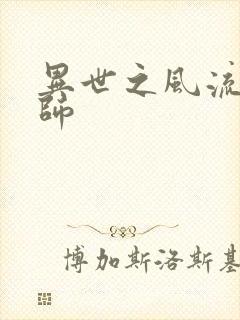 異世之風流
師
博加斯洛斯基